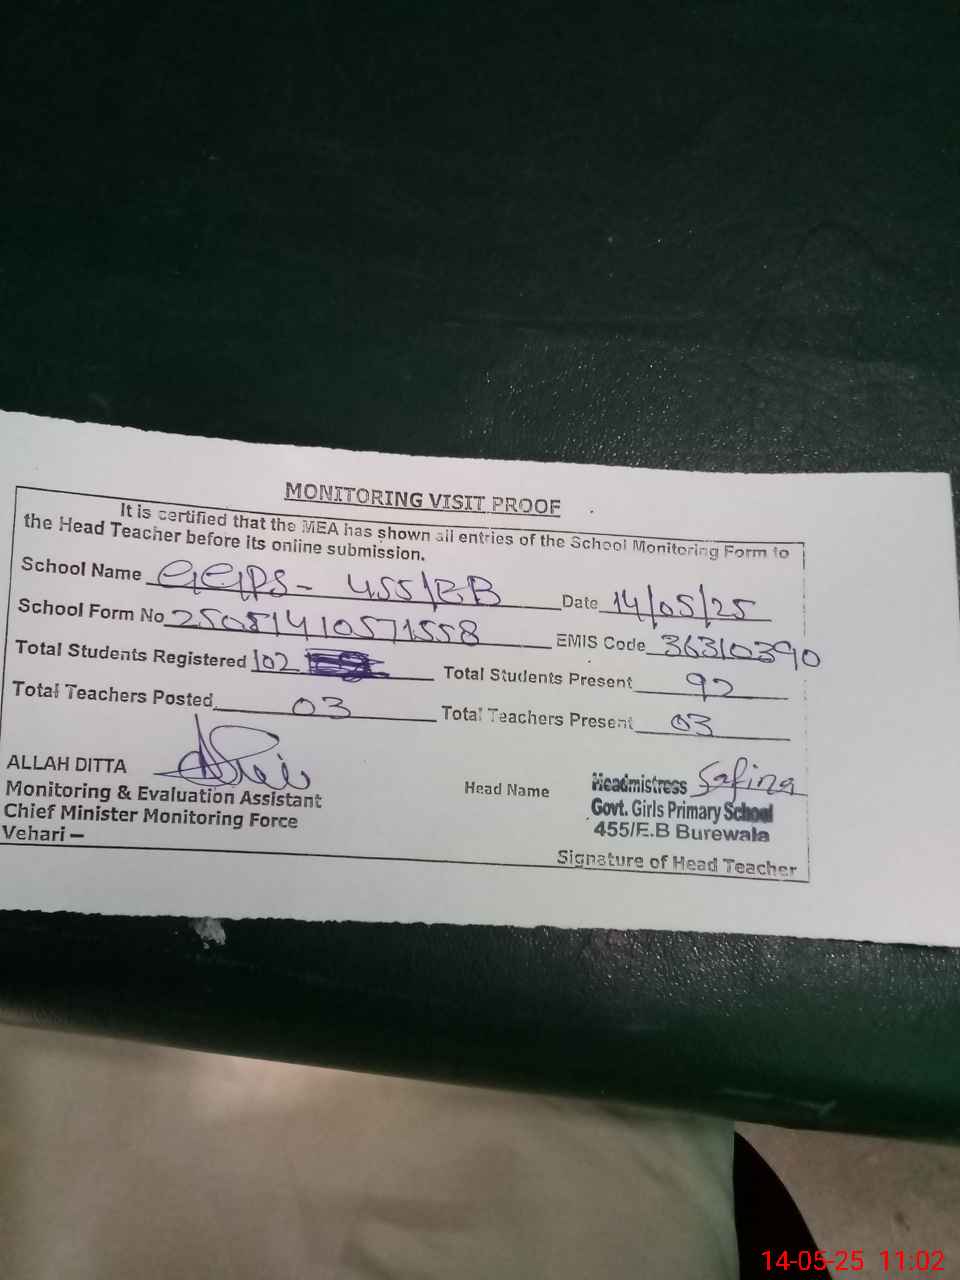 MONITORING VISIT PROOF
It is certified that the MEA has shown all entries of the School Monitoring Form to
the Head Teacher before its online submission.
School Name GGPS- 455/EB Date 14/05/25
School Form No 25051410571558 EMIS Code 36310390
Total Students Registered 102 Total Students Present 92
Total Teachers Posted 03 Total Teachers Present 03
ALLAH DITTA
Monitoring & Evaluation Assistant
Chief Minister Monitoring Force
Vehari –
Head Name
Headmistress Safina
Govt. Girls Primary School
455/E.B Burewala
Signature of Head Teacher
14-05-25 11:02